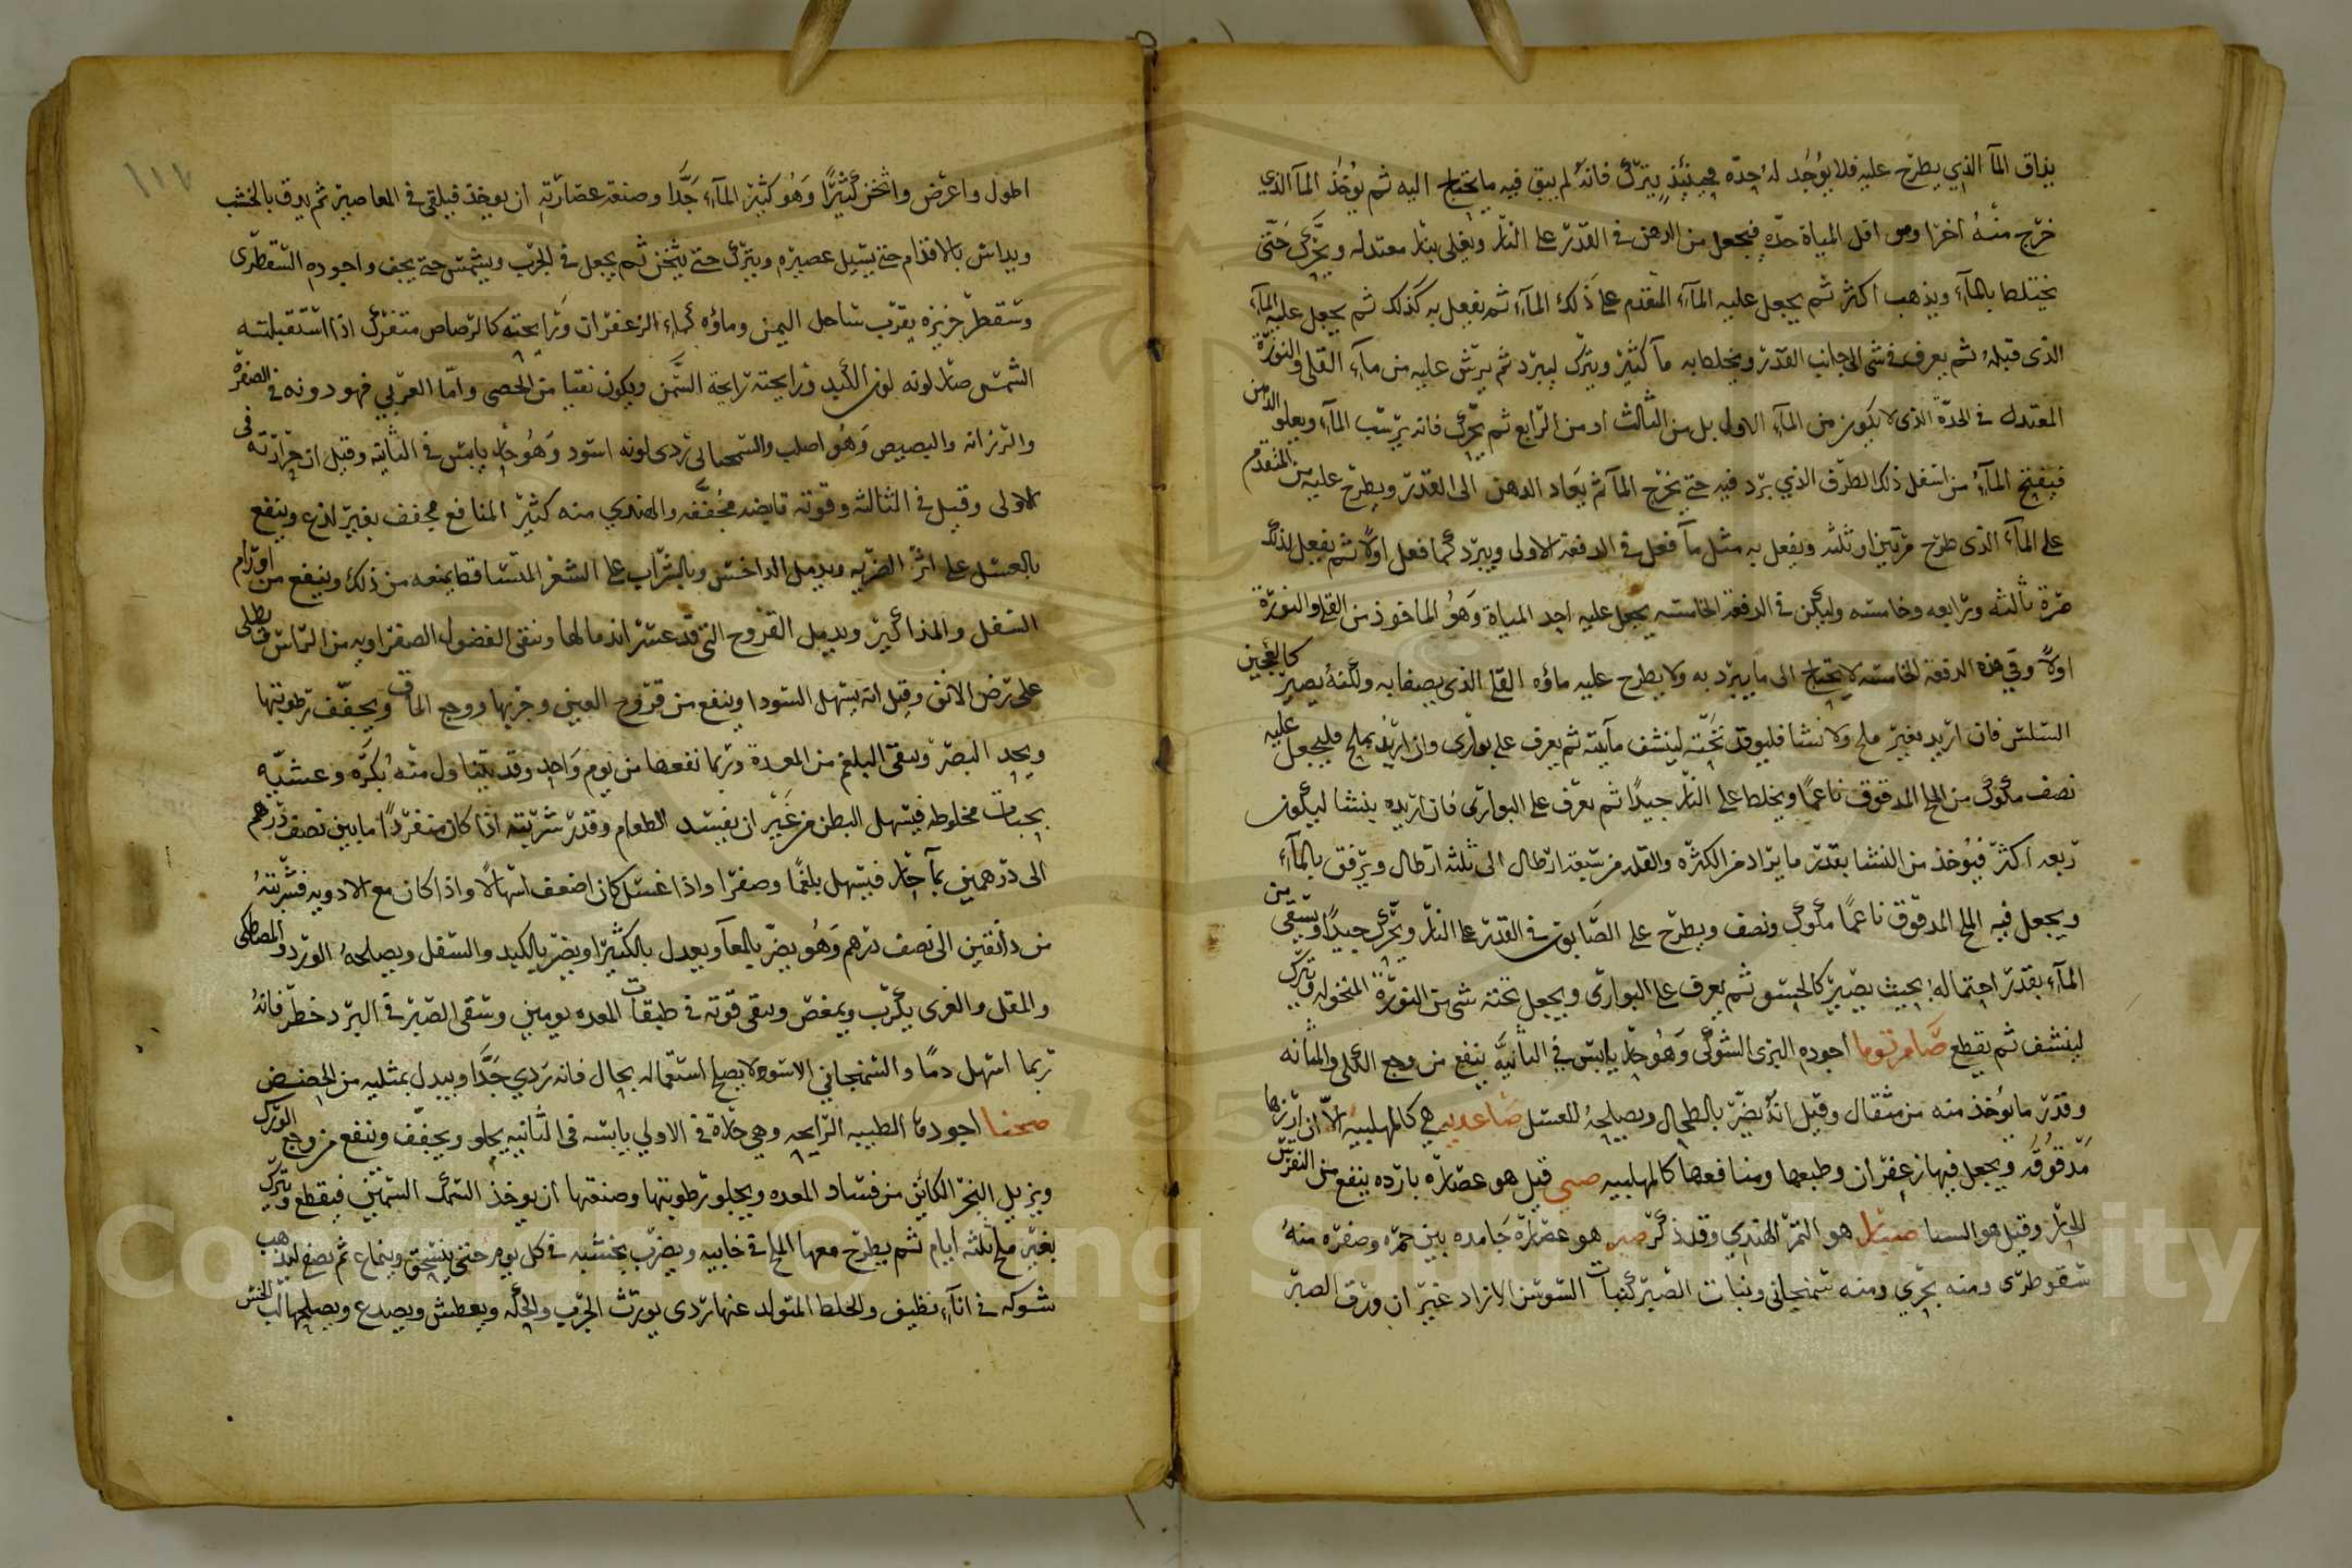 يذاق المآ الذي يطرح عليه فلا يوجد له حدّه فحينئذ يترك فانه لم يبق فيه ما يحتاج اليه ثم يؤخذ المآ الذي
خرج منه اخرا وهو اقل المياة حدّه فيجعل من الدهن في القدر على النار ويغلى بنار معتدله ويحرك حتى
يختلط بالمآء ويذهب اكثر ثم يجعل عليه المآء المقدم على ذلك المآء ثم يفعل به كذلك ثم يجعل عليه المآء
الذى قبله ثم يعرف في شى الى جانب القدر ويخلط به مآ كثير ويترك ليبرد ثم يرش عليه من مآء القلى والنورة
المعتدل في الحدّة الذى لا يكون من المآء الاول بل من الثالث او من الرابع ثم يحرك فانه يرسب المآء ويعلو الدهن
فيفتح المآء من اسفل ذلك الظرف الذي برد فيه حتى يخرج المآ ثم يعاد الدهن الى القدر ويطرح عليه من المتقدم
على المآء الذى طرح مرتين او ثلثه ويفعل به مثل مآ فعل في الدفعة الاولى ويبرد كما فعل اولا ثم يفعل كذلك
مرة ثالثه ورابعه وخامسه وليكن في الدفعة الخامسه يجعل عليه احد المياة وهو الماخوذ من القلى والنورة
اولا وفي هذه الدفعة الخامسه لا يحتاج الى ما يبرد به ولا يطرح عليه ماؤه القلا الذى يصفا به ولكنه يصير كالعجين
السلس فان اريد بغير ملح ولا نشا فليوقد تحته لينشف مآيته ثم يعرف على بوارى وان اريد بملح فليجعل عليه
نصف مكوك من الملح المدقوق ناعما ويخلط على النار جيدا ثم يعرف على البوارى فان اريد بنشا ليكون
ربعه اكثر فيؤخذ من النشا بقدر ما يراد من الكثره والقله من سبعة ارطال الى ثلثه ارطال ويرفق بالمآء
ويجعل فيه الملح المدقوق ناعما مكوك ونصف ويطرح على الصابون في القدر على النار ويحرك جيدا ويسقى من
المآء بقدر احتماله بحيث يصير كالحسو ثم يعرف على البوارى ويجعل تحته شى من النورة المنخوله ويترك
لينشف ثم يقطع صامرتوما اجوده البزى الشوكى وهو حار يابس في الثانية ينفع من وجع الكلى والمثانه
وقدر ما يؤخذ منه من مثقال وقيل انه يضر بالطحال ويصلحه العسل صاعديه هي كالمهلبيه الا ان ارزها
مدقوقه ويجعل فيها زعفران وطبعها ومنافعها كالمهلبيه صبى قيل هو عصارة بارده ينفع من النقرس
الحار وقيل هو السنا صبار هو التمر الهندي وقد ذكر صبر هو عصارة جامده بين حمره وصفره منه
سقوطرى ومنه بحري ومنه سمنجانى ونبات الصبر كنبات السوسن الازاد غير ان ورق الصبر
١١٧
اطول واعرض واثخن كثيرا وهو كثير المآء جدا وصنعة عصارته ان يوخذ فيلقى في المعاصير ثم يدق بالخشب
ويداس بالاقدام حتى يسيل عصيره ويترك حتى يثخن ثم يجعل في الجرب ويشمس حتى يجف واجوده السقطرى
وسقطر جزيرة بقرب ساحل اليمن وماؤه كماء الزعفران ورايحته كالرصاص متفرك اذا استقبلته
الشمس صار لونه لون الكبد ورايحته رايحة السمن ويكون نقيا من الحصى واما العربي فهو دونه في الصفره
والرزانه والبصيص وهو اصلب والسمنجانى ردى لونه اسود وهو حار يابس في الثانية وقيل ان حرارته في
الاولى وقيل في الثالثه وقوته قابضه مجففه والهندي منه كثير المنافع مجفف بغير لذع وينفع
بالعسل على اثر الضربه ويدمل الداخس وبالشراب على الشعر المتساقط يمنعه من ذلك وينفع من اورام
السفل والمذاكير ويدمل القروح التى قد عسر اندمالها وينقى الفضول الصفراويه من الراس يطلى
على ترض الانف وقيل انه يسهل السودا وينفع من قروح العين وجربها ووجع الماق ويجفف رطوبتها
ويحد البصر وينقى البلغم من المعدة وربما نفعها من يوم واحد وقد يتناول منه بكره وعشيه
بحبات مخلوطه فيسهل البطن من غير ان يفسد الطعام وقدر شربته اذا كان منفردا ما بين نصف درهم
الى درهمين بمآ حار فيسهل بلغما وصفرا واذا غسل كان اضعف اسهالا واذا كان مع الادويه فشربته
من دانقين الى نصف درهم وهو يضر بالمعآ ويعدل بالكثيرا ويضر بالكبد والسفل ويصلحه الورد والمصطكى
والمقل والغرى يكرب ويمغص ويبقى قوته في طبقات المعده يومين وسقى الصبر في البرد خطر فانه
ربما اسهل دما والسمنجاني الاسود لا يصلح استعماله بحال فانه ردي جدا ويبدل بمثليه من الحضض
صحنا اجودها الطيبه الرايحه وهي حارة في الاولي يابسه في الثانيه يجلو ويجفف وينفع من وجع الورك
ويزيل البخر الكائن من فساد المعده ويجلو رطوبتها وصنعتها ان يوخذ السمك السمين فيقطع ويترك
بغير ملح ثلثه ايام ثم يطرح معها الملح في خابيه ويضرب بخشبه في كل يوم حتى ينسحق وينماع ثم يصفى ليذهب
شوكه في انآء نظيف والخلط المتولد عنها ردى يورث الجرب والحكه ويعطش ويصدع ويصلحها لب الخس